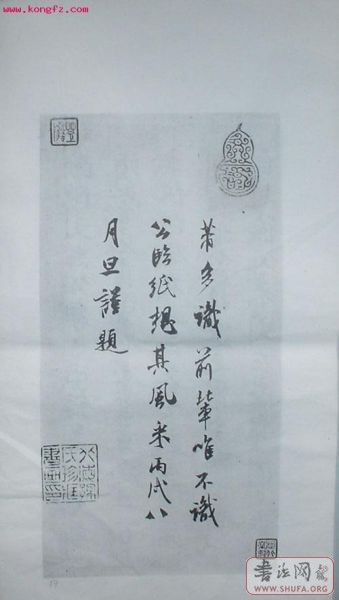 www.kongfz.com
芾多識前輩唯不識
公臨紙想其風采丙戌八
月旦謹題
17
書法网报
WWW.SHUFA.ORG